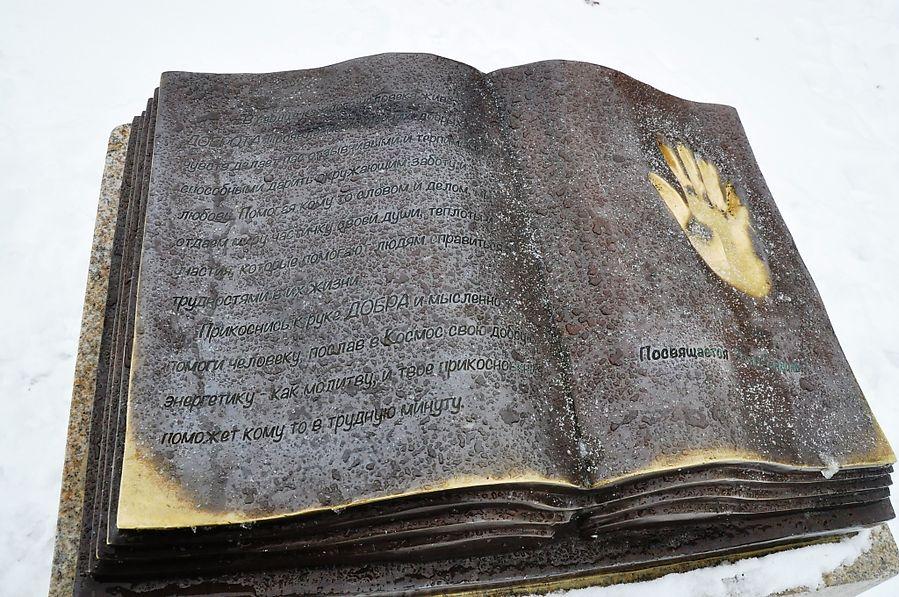 ДОБРОТА
чувство делает нас отзывчивыми и терпим
способными дарить окружающим заботу и
любовь. Помогая кому то словом и делом, мы
отдаем миру частичку своей души, теплоты и
участия, которые помогают людям справиться с
трудностями в их жизни.
Прикоснись к руке ДОБРА и мысленно
помоги человеку, послав в Космос свою добрую
энергетику - как молитву, и твое прикосновение
поможет кому то в трудную минуту.
Посвящается